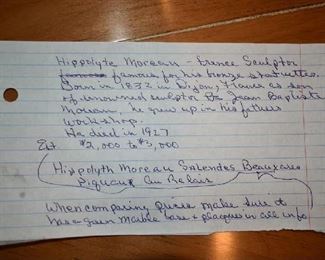 Hippolyte Moreau - France Sculptor
famous famous for his bronze statuettes.
Born in 1832 in Dijon, France as son
of renowned sculptor Jean Baptiste
Moreau. he grew up in his fathers
workshop.
He died in 1927
Est $2,000 to $3,000
Hippolyth Moreau Salendes Beauxares
Piqueur Au Relais
When comparing prices make sure it
has a green marble base & plaque in all info